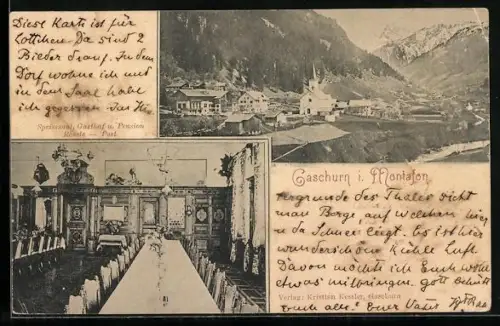 Diese Karte ist für
Lottchen. Da sind 2
Bilder drauf. In dem
Dorf wohne ich und
in dem Saal habt
ich gegessen. Das
Speisesaal, Gasthof u. Pension
Rössle — Post
Gaschurn i. Montafon
des Thales sieht
man Berge, auf welchen hier
u. da Schnee liegt. Es ist hier
wunderschön kühle Luft.
Davon möchte ich Euch
etwas mitbringen. Gott
Euch alle! Euer Vater
Verlag: Kristian Kessler, Gaschurn